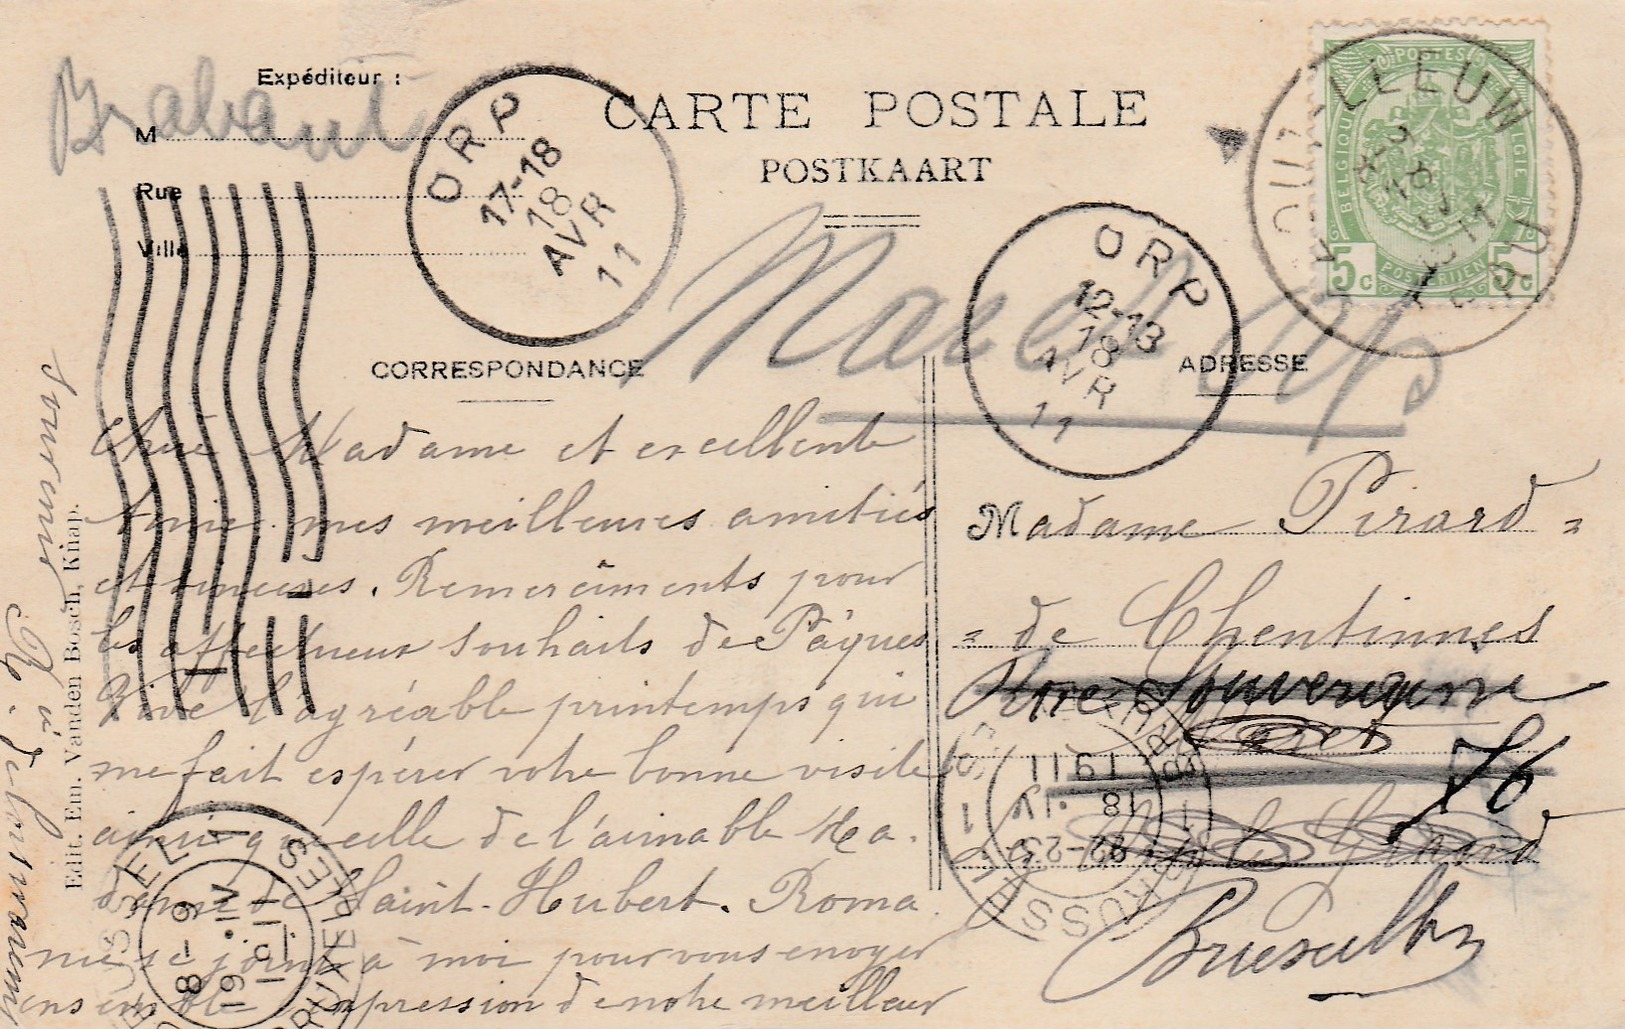 Brabant
Expéditeur :
M
Rue
Ville
ORP
17-18
18
AVR
11
CARTE POSTALE
POSTKAART
POSTES
BELGIQUE
BELGIE
5c
POSTERIJEN
5c
ORP
12-13
18
AVR
11
CORRESPONDANCE
ADRESSE
Chère Madame et excellente
Amie. mes meilleures amitiés
et sincères. Remerciments pour
les affectueux souhaits de Pâques
Vive l'agréable printemps qui
me fait espérer votre bonne visite
ainsi que celle de l'aimable Ma.
dame de Saint-Hubert. Roma.
nie se joint à moi pour vous envoyer
ensemble expression de notre meilleur
souvenir
Edit. Em. Vanden Bosch, Knap.
Madame Pirard =
= de Chentinnes
Rue Souveraine
76
Grand
Bruxelles
BRUXELLES 1
BRUSSEL 1
1911
18 IV
22-23
BRUXELLES
BRUSSEL 1
1911
19 IV
8-9